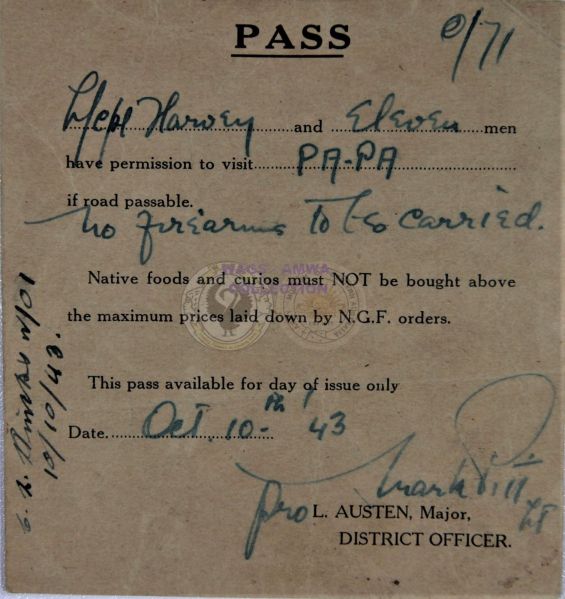 PASS
C/71
L/Cpl Harvey and Eleven men
have permission to visit PA-PA
if road passable.
No firearms to be carried.
NACS AMWA
COLLECTION
Native foods and curios must NOT be bought above
the maximum prices laid down by N.G.F. orders.
This pass available for day of issue only
Date Oct. 10th '43
pro L. AUSTEN, Major,
DISTRICT OFFICER.
10/10/43.